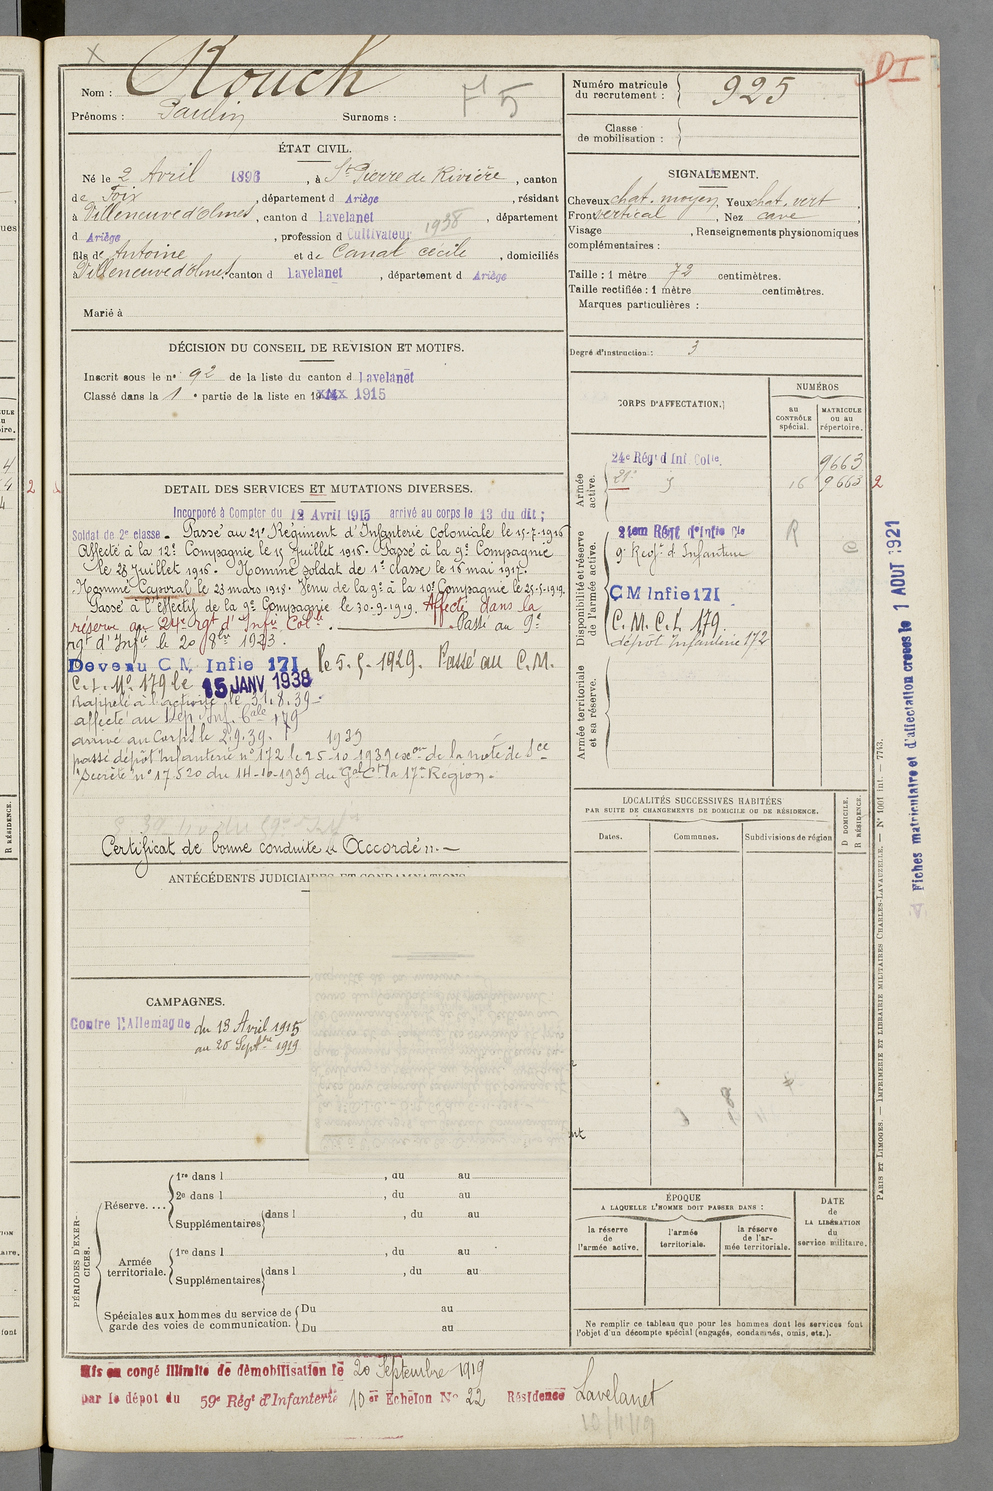 Nom : Rouch
Prénoms : Paulin Surnoms :
F 5
ÉTAT CIVIL.
Né le 2 Avril 1896, à St Pierre de Rivière, canton
de Foix, département d Ariège, résidant
à Villeneuve d'olmes, canton d Lavelanet, département
1938
d Ariège, profession d Cultivateur
fils de Antoine et de Canal cécile, domiciliés
Villeneuve d'olmes canton d Lavelanet, département d Ariège
Marié à
DÉCISION DU CONSEIL DE REVISION ET MOTIFS.
Inscrit sous le n° 92 de la liste du canton d Lavelanet
Classé dans la 1e partie de la liste en 1915
DETAIL DES SERVICES ET MUTATIONS DIVERSES.
Incorporé à Compter du 12 Avril 1915 arrivé au corps le 13 du dit ;
Soldat de 2e classe. Passé au 21e Régiment d'Infanterie Coloniale le 15-7-1916
Affecté à la 12e Compagnie le 15 Juillet 1916. Passé à la 9e Compagnie
le 28 Juillet 1916. Nommé soldat de 1e classe le 16 mai 1917.
Nommé Caporal le 23 mars 1918. Venu de la 9e à la 10e Compagnie le 25-5-1919.
Passé à l'effectif de la 9e Compagnie le 30-9-1919. Affecté dans la
réserve au 24e rgt d'Infie Colle. Passé au 9e
rgt d'Infie le 20 8bre 1923.
Devenu C M Infie 171 le 5.5.1929. Passé au C.M.
C.L. No 179 le 15 JANV 1938
Rappelé à l'activité le 31.8.39
affecté au Dep. Inf. Cale 179
arrivé au Corps le 2.9.39. 1939
passé dépôt Infanterie n° 172 le 25-10-1939 exon de la note de Sce
Secrète n° 17520 du 14-10-1939 du Gal Ct la 17e Région.
Certificat de bonne conduite "Accordé".
ANTÉCÉDENTS JUDICIAIRES ET CONDAMNATIONS
CAMPAGNES.
Contre l'Allemagne du 13 Avril 1915
au 20 Septbre 1919
PÉRIODES D'EXERCICES.
Réserve....
1re dans l , du au
2e dans l , du au
Supplémentaires dans l , du au
Armée territoriale.
1re dans l , du au
Supplémentaires dans l , du au
Spéciales aux hommes du service de garde des voies de communication.
Du au
Du au
Mis en congé illimité de démobilisation le 20 Septembre 1919
par le dépôt du 59e Régt d'Infanterie 10 er Echelon No 22 Résidence Lavelanet
10/11/19
Numéro matricule
du recrutement : 925
DI
Classe
de mobilisation :
SIGNALEMENT.
Cheveux chat. moyen, Yeux chat. vert
Front vertical, Nez cave
Visage , Renseignements physionomiques
complémentaires :
Taille : 1 mètre 72 centimètres.
Taille rectifiée : 1 mètre centimètres.
Marques particulières :
Degré d'instruction : 3
CORPS D'AFFECTATION.
NUMÉROS
au
CONTRÔLE
spécial.
MATRICULE
ou au
répertoire.
Armée
active.
24e Régt d Inf Colle. 9663
21e 16 9665 2
Disponibilité et réserve
de l'armée active.
24em Régt d'Infie Cle
9e Regt d'Infanterie
R
CM Infie 171
C.M.C.L 179
dépôt Infanterie 172
Armée territoriale
et sa réserve.
LOCALITÉS SUCCESSIVES HABITÉES
PAR SUITE DE CHANGEMENTS DE DOMICILE OU DE RÉSIDENCE.
Dates.
Communes.
Subdivisions de région
D DOMICILE.
R RÉSIDENCE.
ÉPOQUE
A LAQUELLE L'HOMME DOIT PASSER DANS :
la réserve
de
l'armée active.
l'armée
territoriale.
la réserve
de l'ar-
mée territoriale.
DATE
de
LA LIBÉRATION
du
service militaire.
Ne remplir ce tableau que pour les hommes dont les services font
l'objet d'un décompte spécial (engagés, condamnés, omis, etc.).
Fiches matriculaire et d'affectation créées le 1 AOUT 1921
PARIS ET LIMOGES. — IMPRIMERIE ET LIBRAIRIE MILITAIRES CHARLES-LAVAUZELLE. — N° 1001 int. — 7743.